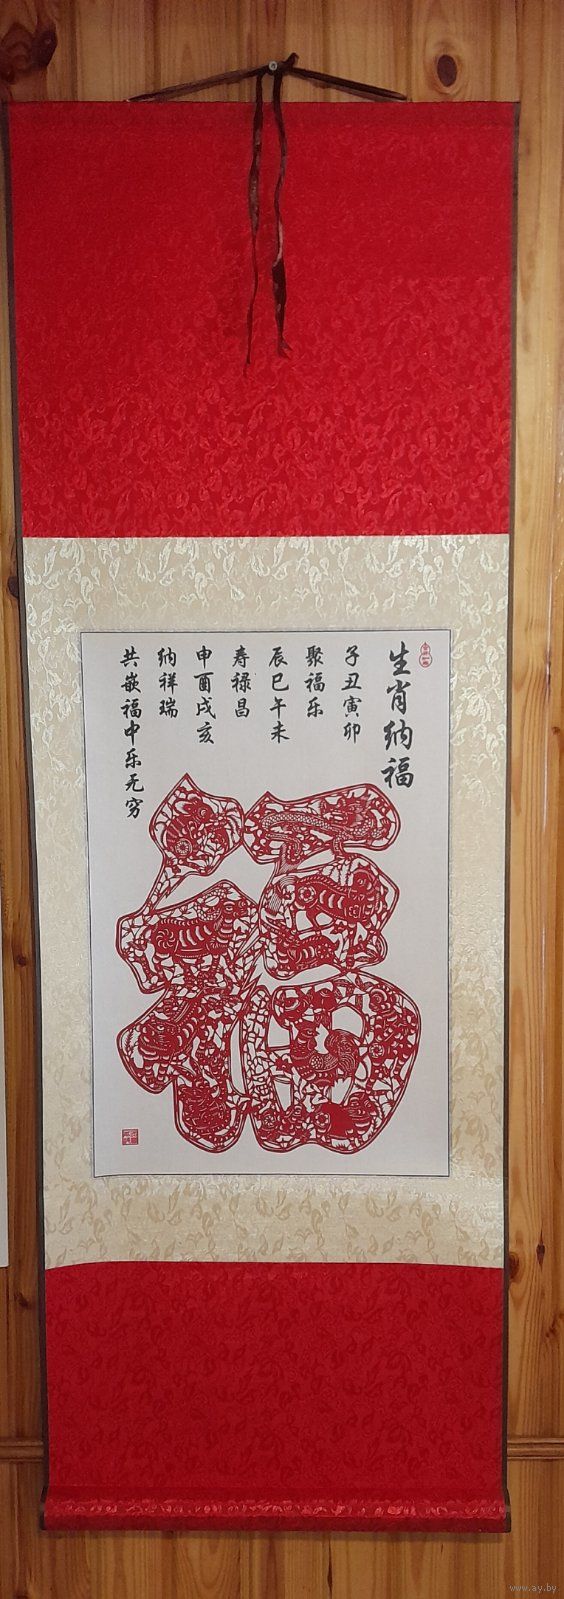 生肖纳福
子丑寅卯
聚福乐
辰巳午未
寿禄昌
申酉戌亥
纳祥瑞
共嵌福中乐无穷
福
www.ay.by